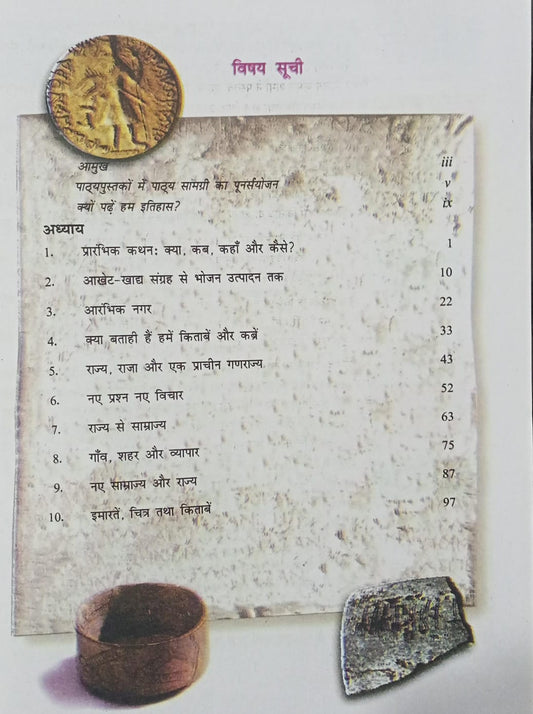 विषय सूची
आमुख iii
पाठ्यपुस्तकों में पाठ्य सामग्री का पुनर्संयोजन v
क्यों पढ़ें हम इतिहास? ix
अध्याय
1. प्रारंभिक कथन: क्या, कब, कहाँ और कैसे? 1
2. आखेट-खाद्य संग्रह से भोजन उत्पादन तक 10
3. आरंभिक नगर 22
4. क्या बताही हैं हमें किताबें और कब्रें 33
5. राज्य, राजा और एक प्राचीन गणराज्य 43
6. नए प्रश्न नए विचार 52
7. राज्य से साम्राज्य 63
8. गाँव, शहर और व्यापार 75
9. नए साम्राज्य और राज्य 87
10. इमारतें, चित्र तथा किताबें 97